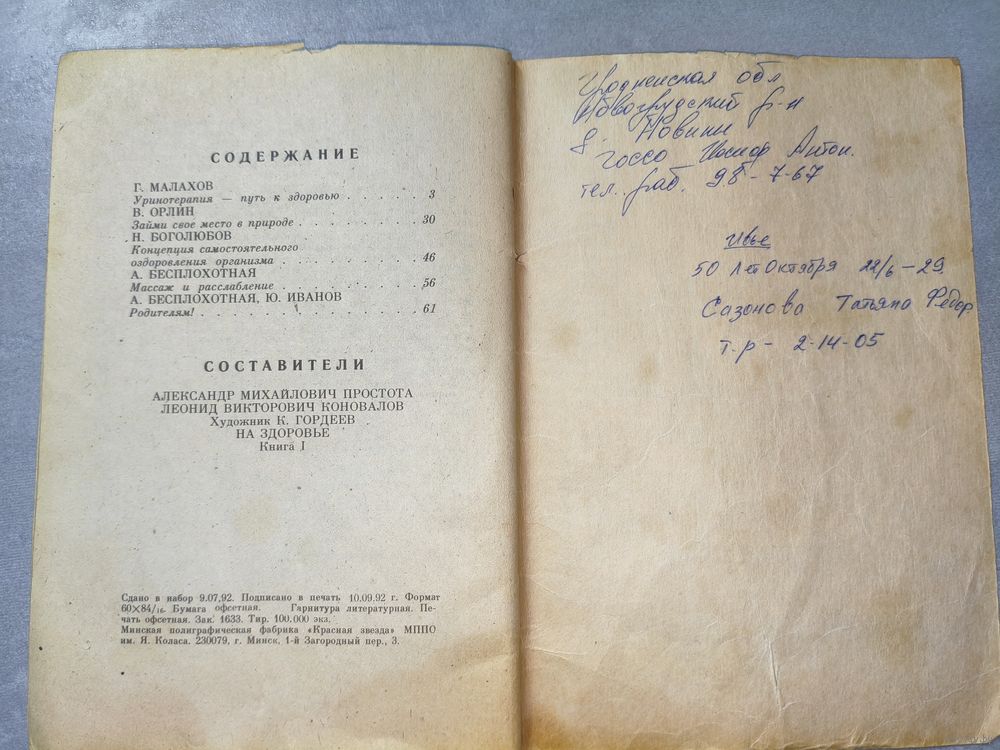 СОДЕРЖАНИЕ
Г. МАЛАХОВ
Уринотерапия — путь к здоровью . . . . . . . . 3
В. ОРЛИН
Займи свое место в природе . . . . . . . . . . 30
Н. БОГОЛЮБОВ
Концепция самостоятельного
оздоровления организма . . . . . . . . . . . 46
А. БЕСПЛОХОТНАЯ
Массаж и расслабление . . . . . . . . . . . 56
А. БЕСПЛОХОТНАЯ, Ю. ИВАНОВ
Родителям! . . . . . . . . . . . . . . . . 61
СОСТАВИТЕЛИ
АЛЕКСАНДР МИХАЙЛОВИЧ ПРОСТОТА
ЛЕОНИД ВИКТОРОВИЧ КОНОВАЛОВ
Художник К. ГОРДЕЕВ
НА ЗДОРОВЬЕ
Книга I
Сдано в набор 9.07.92. Подписано в печать 10.09.92 г. Формат
60×84/16. Бумага офсетная. Гарнитура литературная. Пе-
чать офсетная. Зак. 1633. Тир. 100.000 экз.
Минская полиграфическая фабрика «Красная звезда» МППО
им. Я. Коласа. 230079, г. Минск, 1-й Загородный пер., 3.
Гродненская обл
Новогрудский р-н
д. Новины
Госсо Иосиф Антон.
тел. раб. 98-7-67
Ивье
50 лет Октября 22/6-29.
Сазонова Татьяна Федор
т.р - 2-14-05